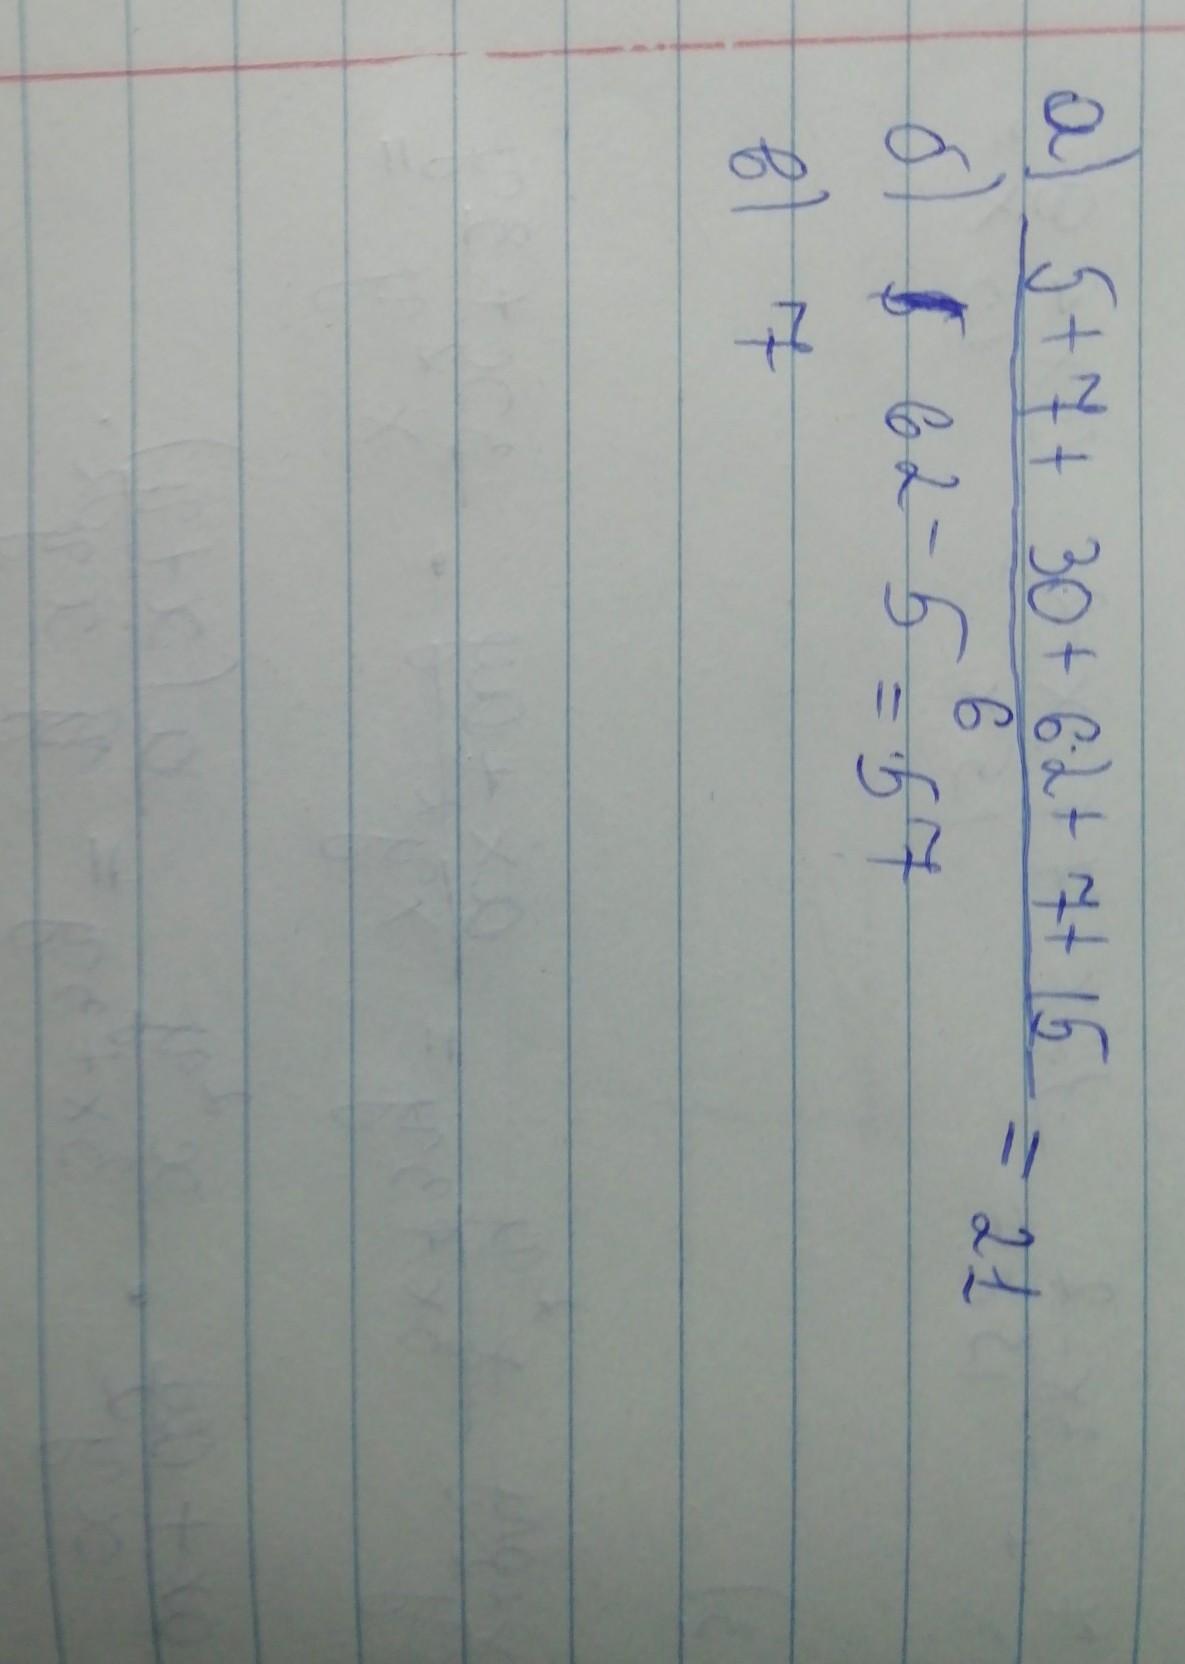 а) 5+7+ 30+ 62+ 7+ 15 = 21
6
б) 62 - 5 = 57
в) 7